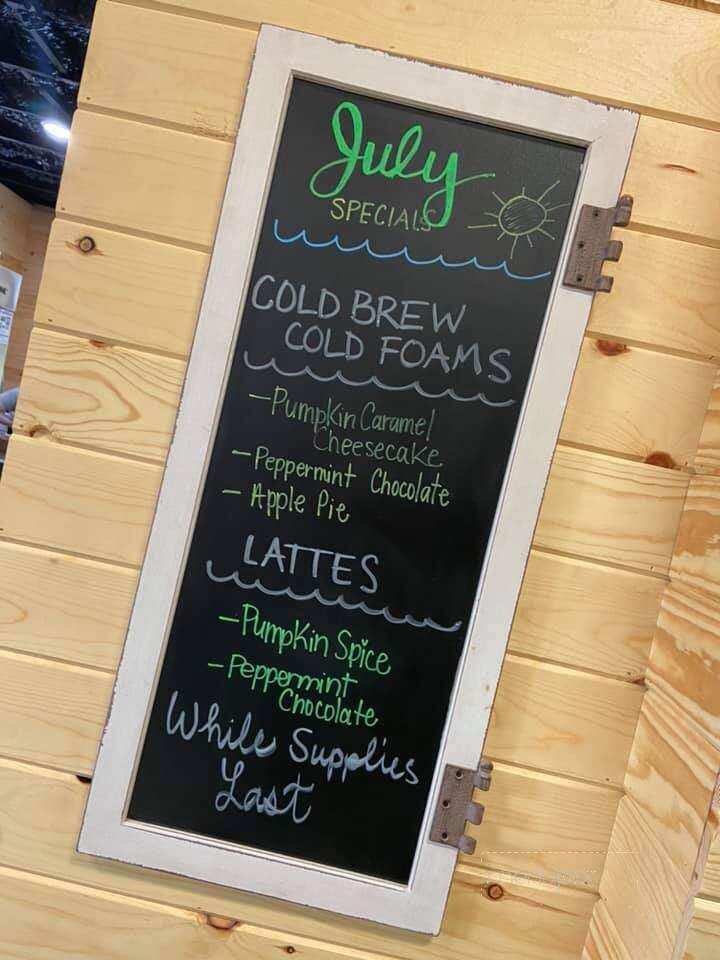 July
SPECIALS
COLD BREW
COLD FOAMS
- Pumpkin Caramel
Cheesecake
- Peppermint Chocolate
- Apple Pie
LATTES
- Pumpkin Spice
- Peppermint
Chocolate
While Supplies
Last